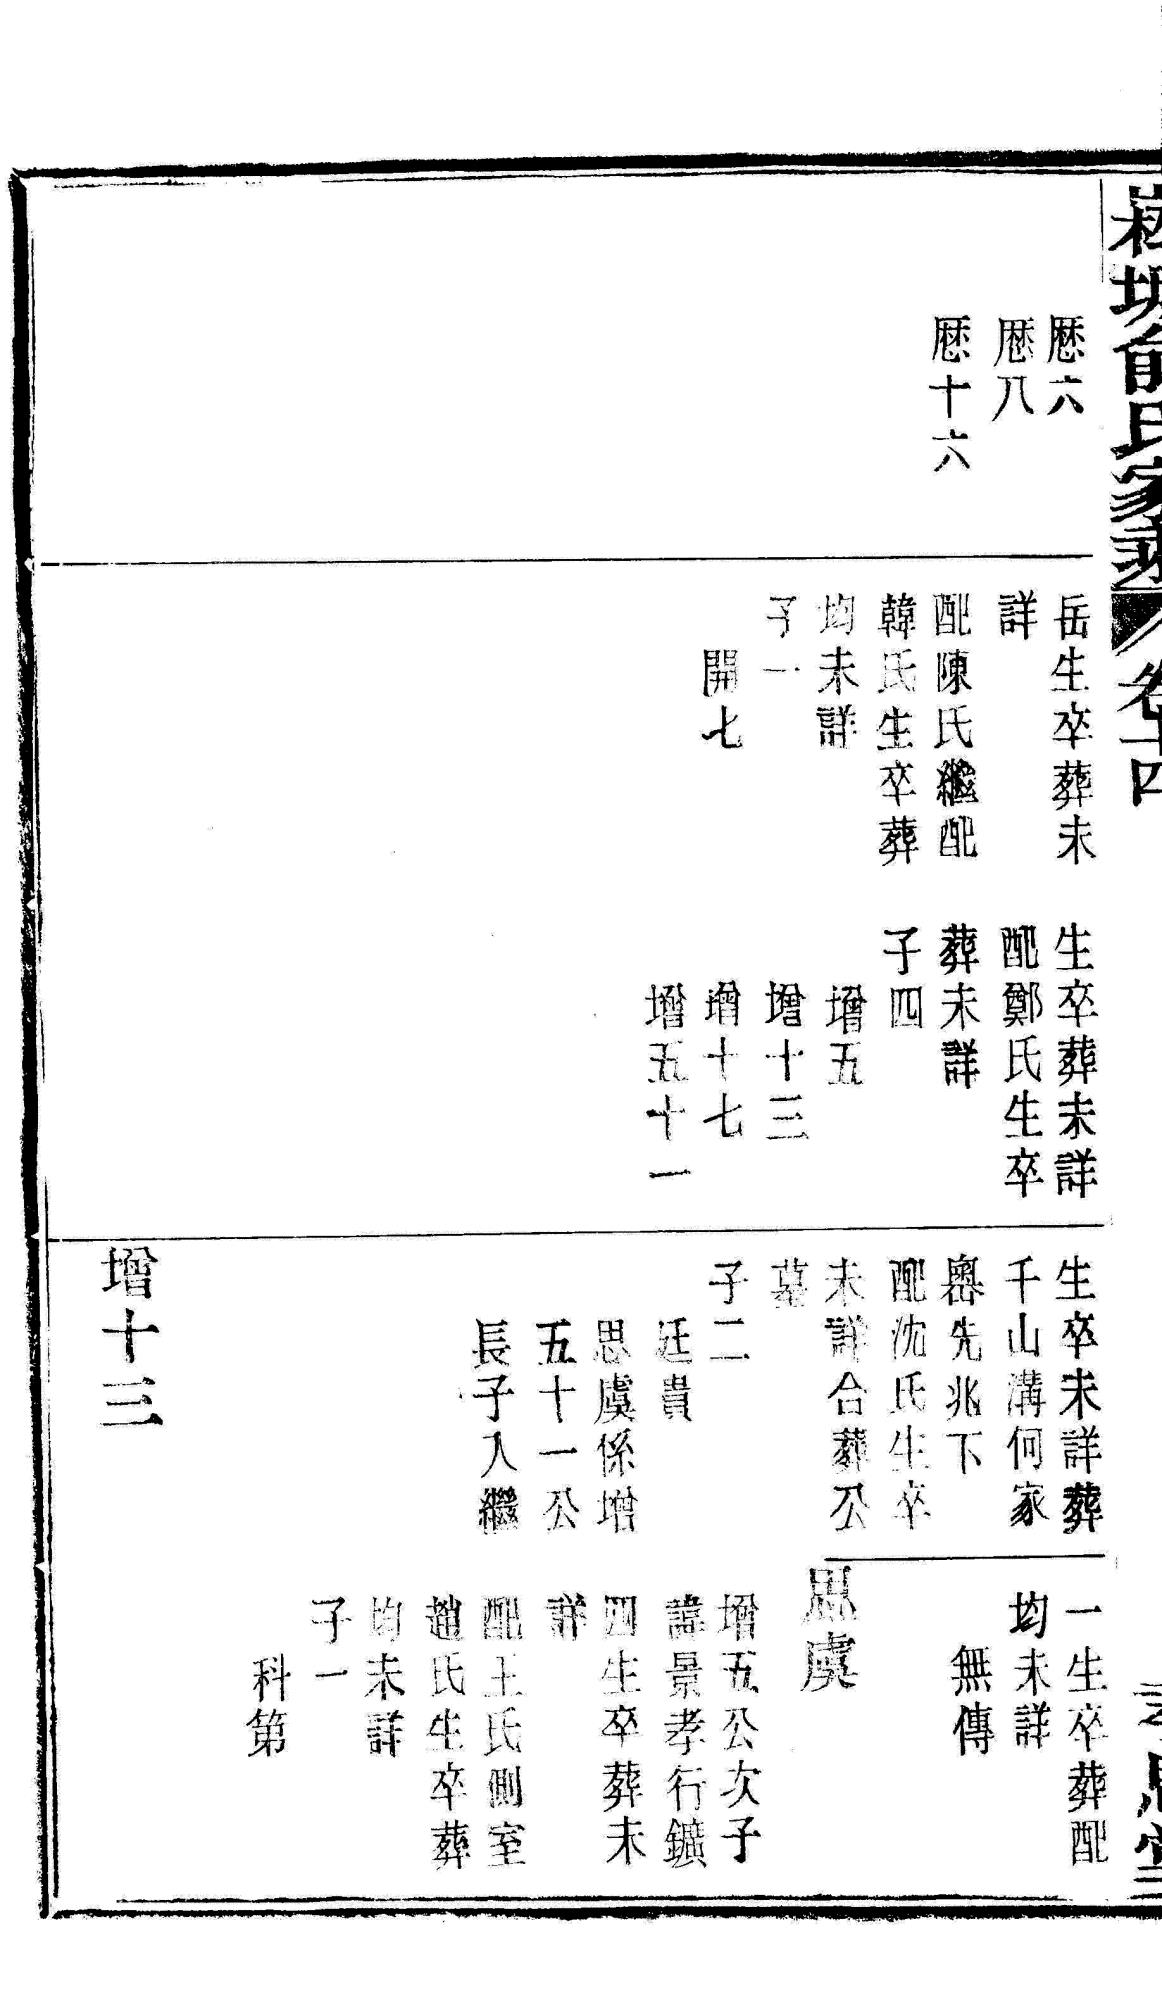 俞氏家
卷十四
思
暦六
暦八
暦十六
岳生卒葬未
詳
配陳氏繼配
韓氏生卒葬
均未詳
子一
開七
生卒葬未詳
配鄭氏生卒
葬未詳
子四
增五
增十三
增十七
增五十一
生卒未詳葬
千山溝何家
嶴先兆下
配沈氏生卒
未詳合葬公
墓
子二
廷貴
思虞係增
五十一公
長子入繼
增十三
一生卒葬配
均未詳
無傳
思虞
增五公次子
諱景孝行鑛
四生卒葬未
詳
配王氏側室
趙氏生卒葬
均未詳
子一
科第